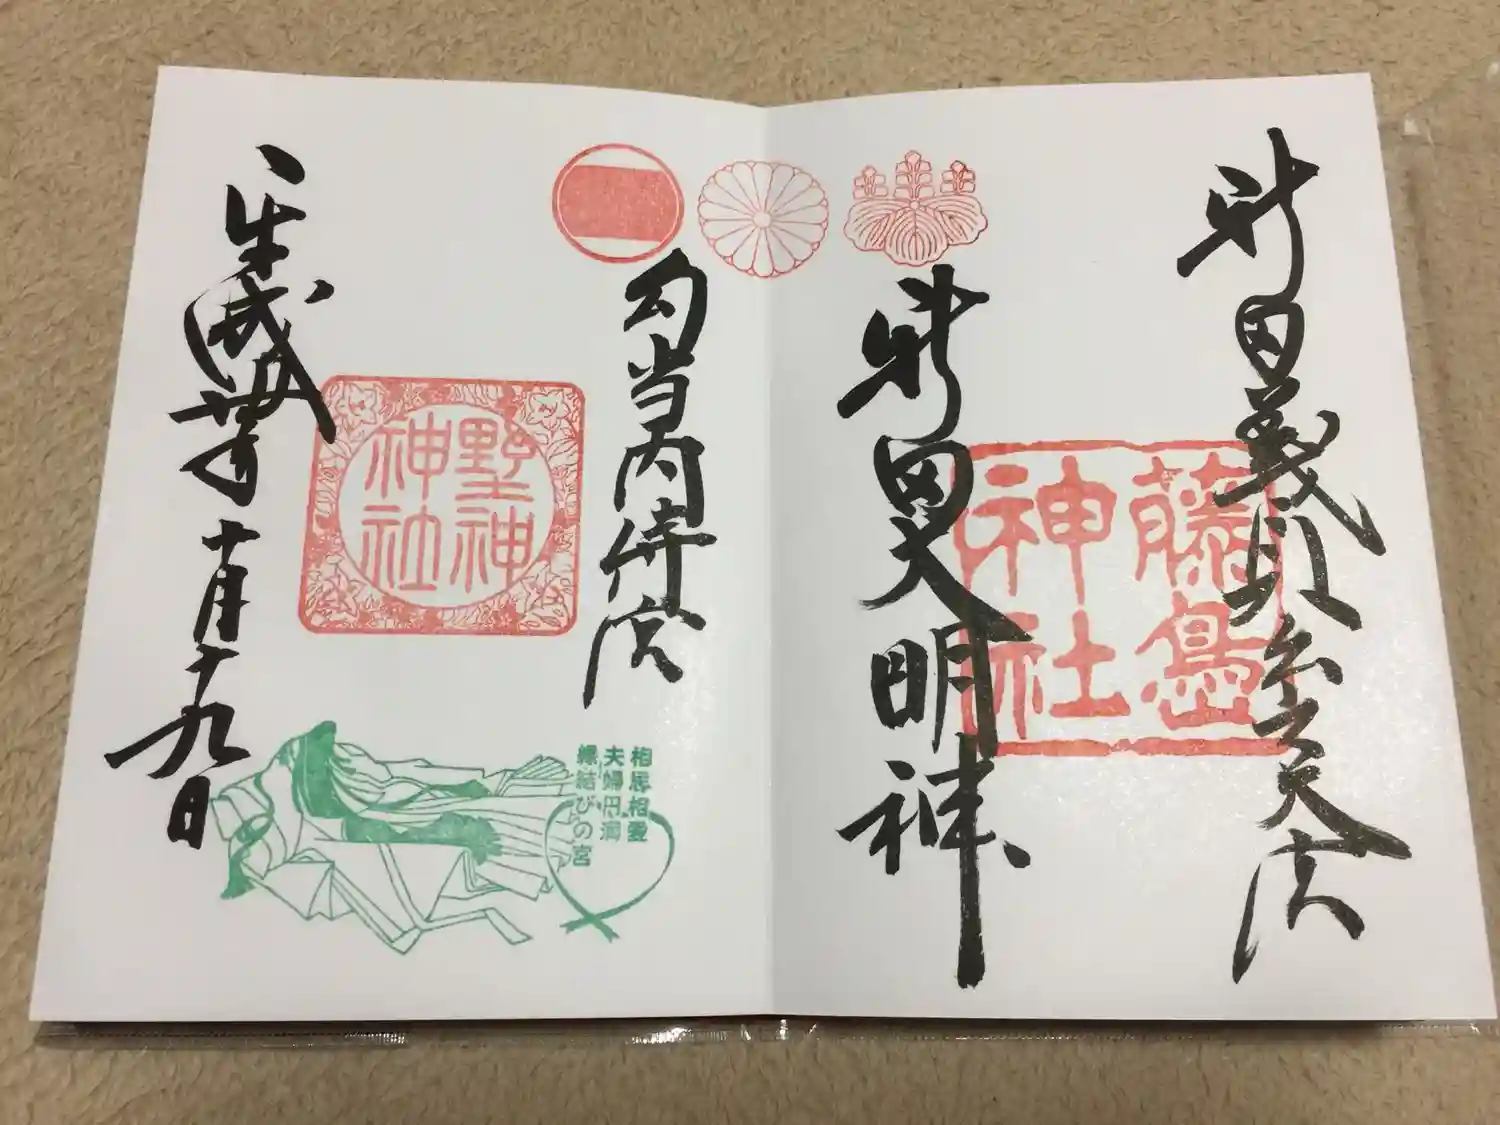 新田義貞公之霊
藤島
神社
新田大明神
勾当内侍霊
野神
神社
相思相愛
夫婦円満
縁結びの宮
平成廿九年十月十九日